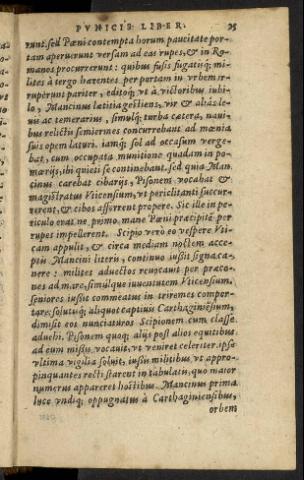 PVNICIS LIBER. 25
runt. sed Pœni contempta horum paucitate por-
tam aperuerunt versam ad eas rupes, & in Ro-
manos procurrerunt: quibus fusis fugatisq; mi-
lites à tergo hærentes per portam in vrbem ir-
ruperunt pariter, editoq; vt à victoribus iubi-
lo, Mancinus lætitia gestiens, vir & aliàs le-
uis ac temerarius, simulq; turba cætera, naui-
bus relictis semiermes concurrebant ad mœnia
suis opem laturi. iamq; sol ad occasum verge-
bat, cum occupata munitione quadam in po-
mœrijs, ibi quieti se continebant. sed quia Man-
cinus carebat cibarijs, Pisonem vocabat &
magistratus Vticensium, vt periclitanti succur-
rerent, & cibos afferrent propere. Sic ille in pe-
riculo erat ne primo mane Pœni præcipitē per
rupes impellerent. Scipio verò eo vespere Vti-
cam appulit, & circa mediam noctem acce-
ptis Mancini literis, continuo iussit signa ca-
nere: milites aduectos reuocauit per præco-
nes ad mare, simulque iuuentutem Vticensium,
seniores iussit commeatus in triremes compor-
tare: solutisq; aliquot captiuis Carthaginēsium,
dimisit eos nunciaturos Scipionem cum classe
aduehi. Pisonem quoq; alijs post alios equitibus
ad eum missis vocauit, vt veniret celeriter. ipse
vltima vigilia soluit, iussis militibus vt appro-
pinquantes recti starent in tabulatis, quo maior
numerus appareret hostibus. Mancinus prima
luce vndiq; oppugnatus à Carthaginensibus,
orbem